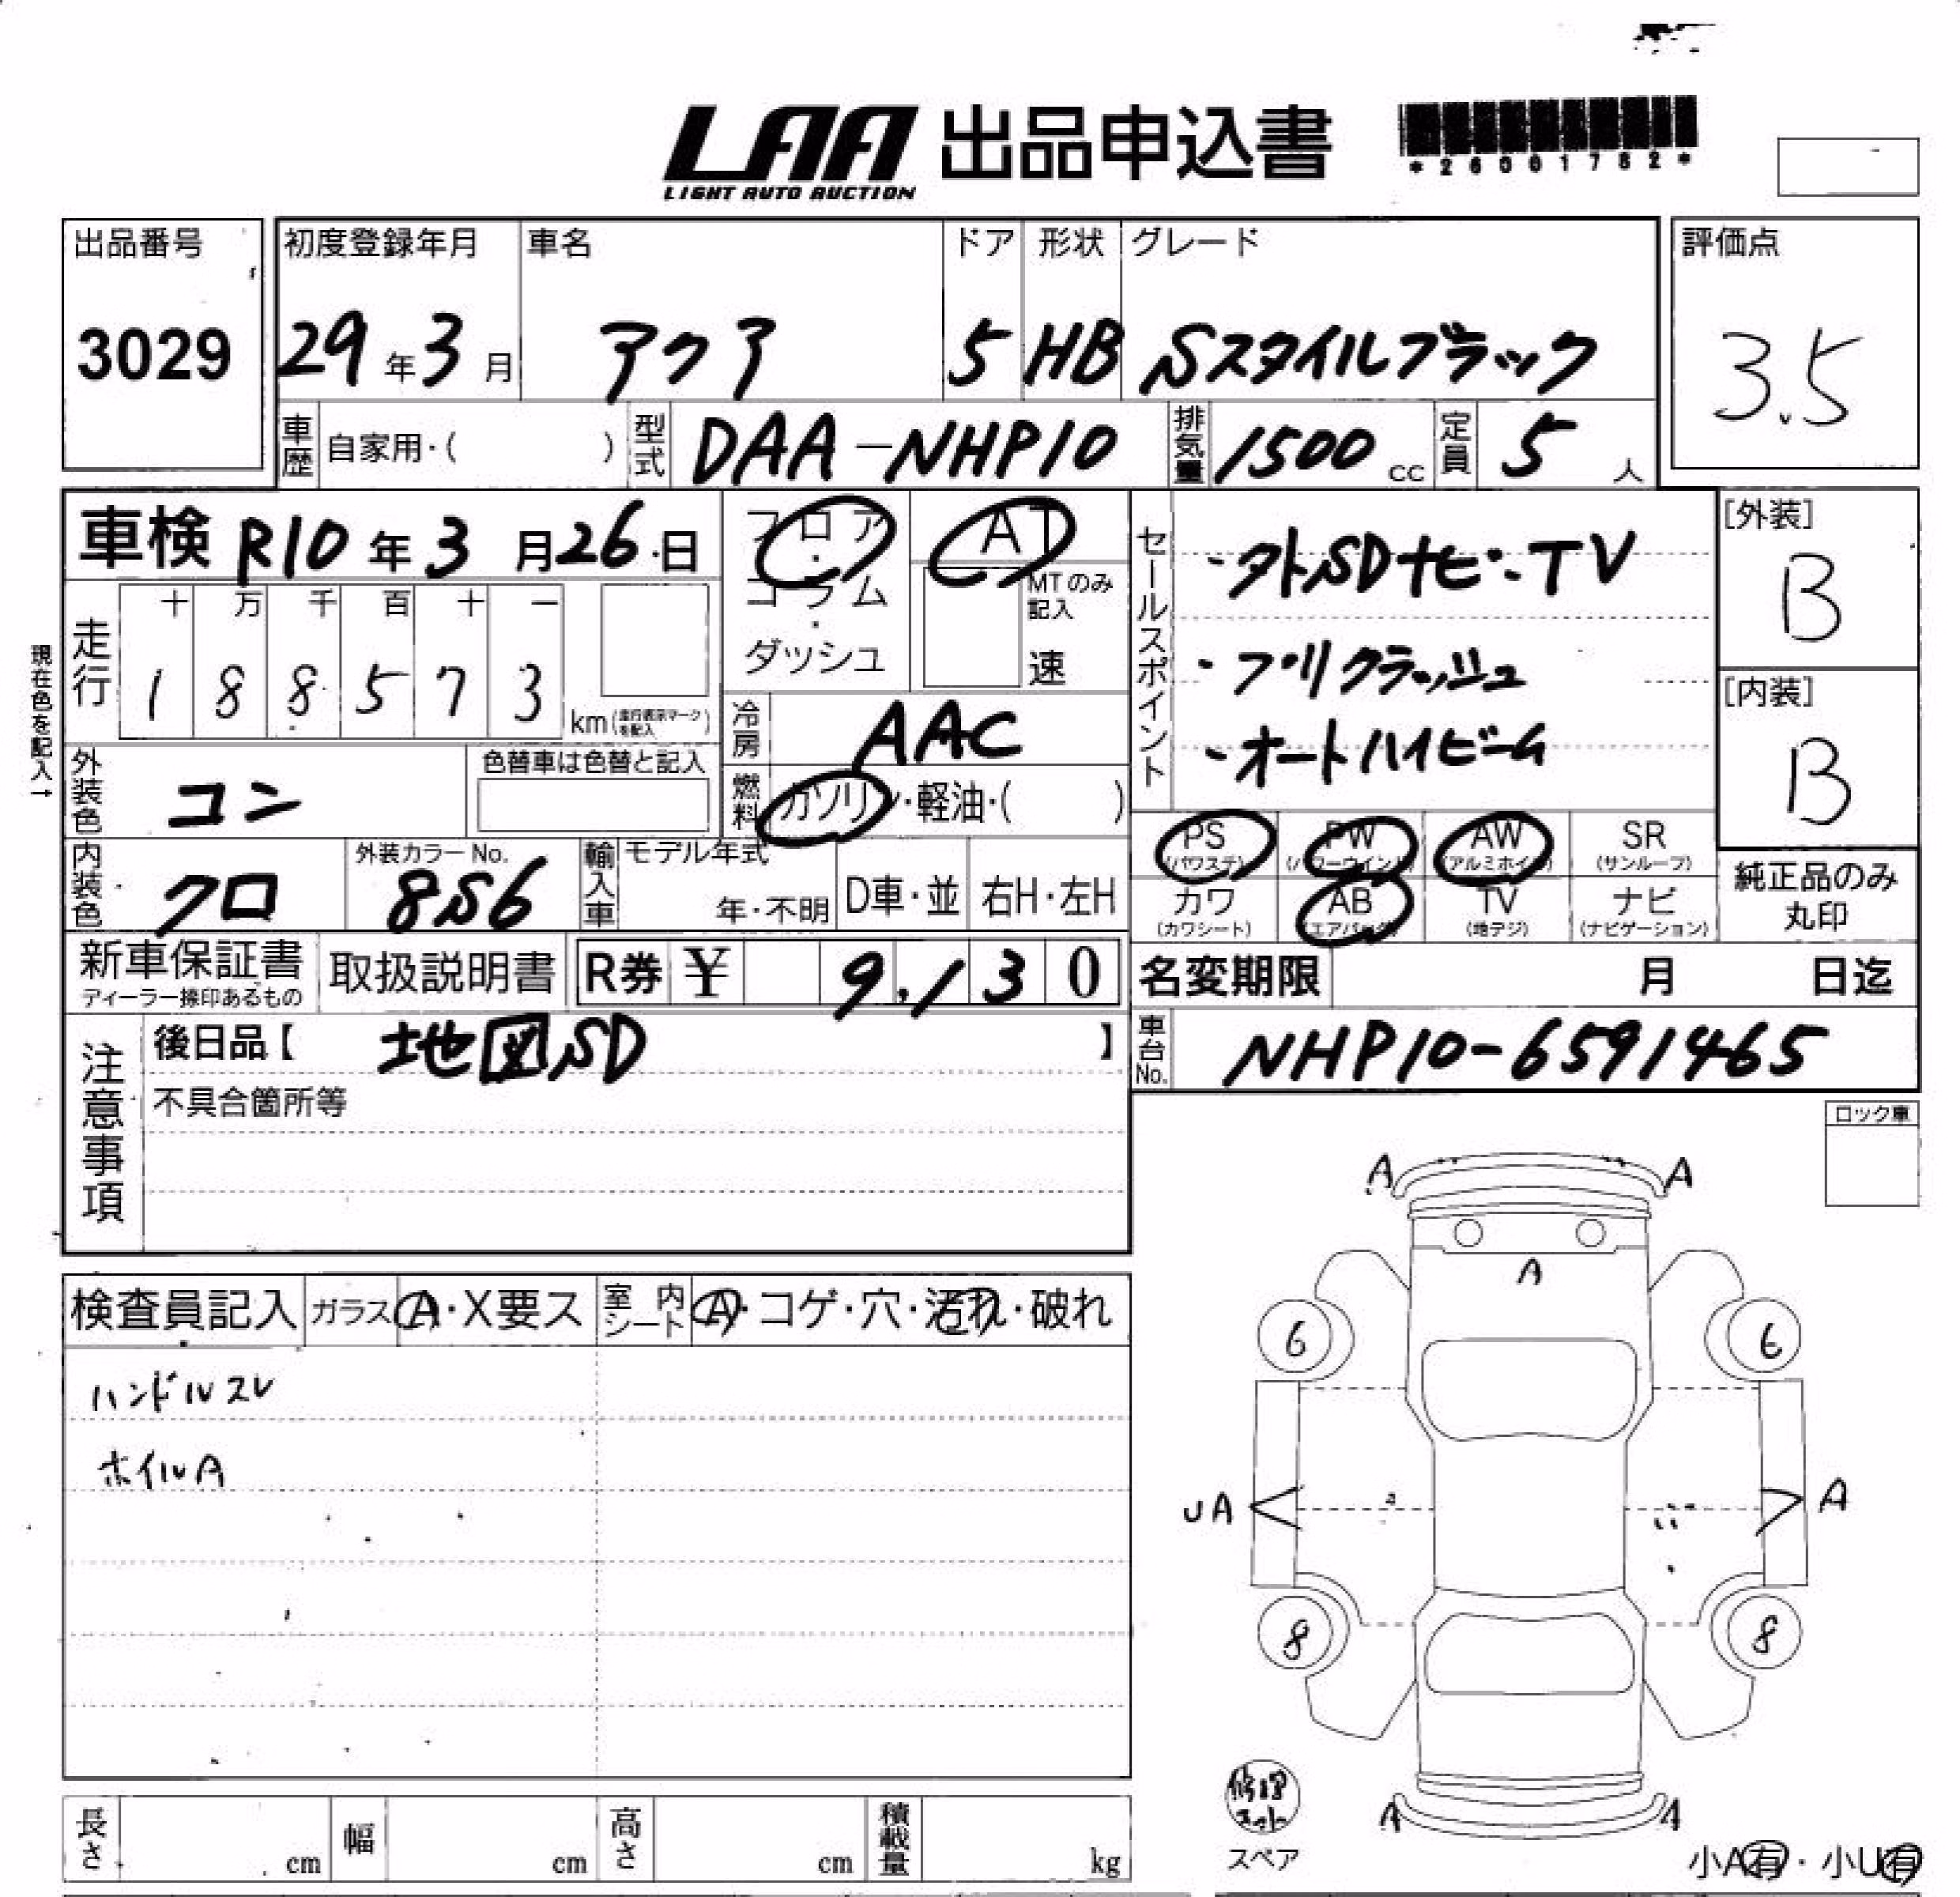 LAA 出品申込書
LIGHT AUTO AUCTION
*26001782*
出品番号
3029
初度登録年月 車名 ドア 形状 グレード
29年3月 アクア 5 HB Sスタイルブラック
評価点
3.5
車歴 自家用・( ) 型式 DAA-NHP10 排気量 1500cc 定員 5人
車検 R10年3月26日
フロア・コラム・ダッシュ
AT
MTのみ記入
速
セールスポイント
・外SDナビ・TV
・プリクラッシュ
・オートハイビーム
[外装]
B
[内装]
B
現在色を記入→
走行 十 万 千 百 十 一
1 8 8 5 7 3 km(走行表示マークを記入)
冷房 AAC
外装色 コン 色替車は色替と記入
燃料 ガソリン・軽油・( )
内装色 クロ 外装カラーNo. 8S6
輸入車 モデル年式 年・不明 D車・並 右H・左H
PS(パワステ) PW(パワーウインド) AW(アルミホイル) SR(サンルーフ)
カワ(カワシート) AB(エアバッグ) TV(地デジ) ナビ(ナビゲーション)
純正品のみ丸印
新車保証書 取扱説明書 R券 ¥ 9,130
ディーラー捺印あるもの
名変期限 月 日迄
注意事項
後日品【 地図SD 】
車台No. NHP10-6591465
不具合箇所等
ロック車
検査員記入 ガラス A・X要ス 室内シート A・コゲ・穴・汚れ・破れ
ハンドルスレ
ホイルA
A A
A
6 6
UA A
8 8
A A
修理キット
スペア
小A有・小U有
長さ cm 幅 cm 高さ cm 積載量 kg